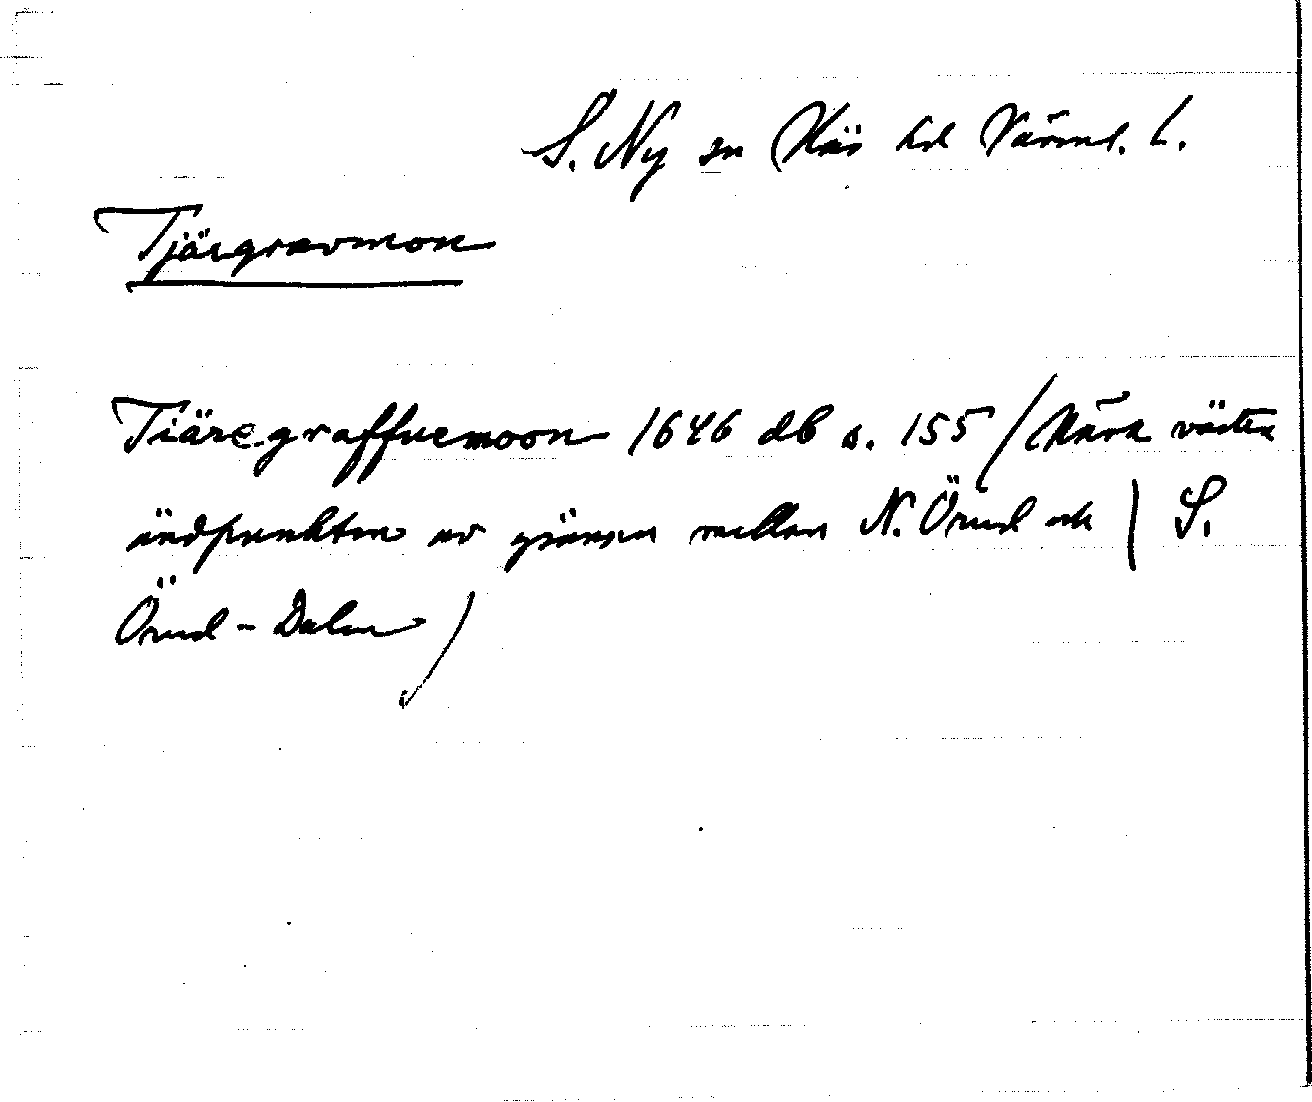 S. Ny sn Näs hd Värml. l.
Tjärgravmon
Tiäregraffuemoon 1646 db s. 155 (Nära västra
ändpunkten av gränsen mellan N. Örud och | S.
Örud - Dalen)